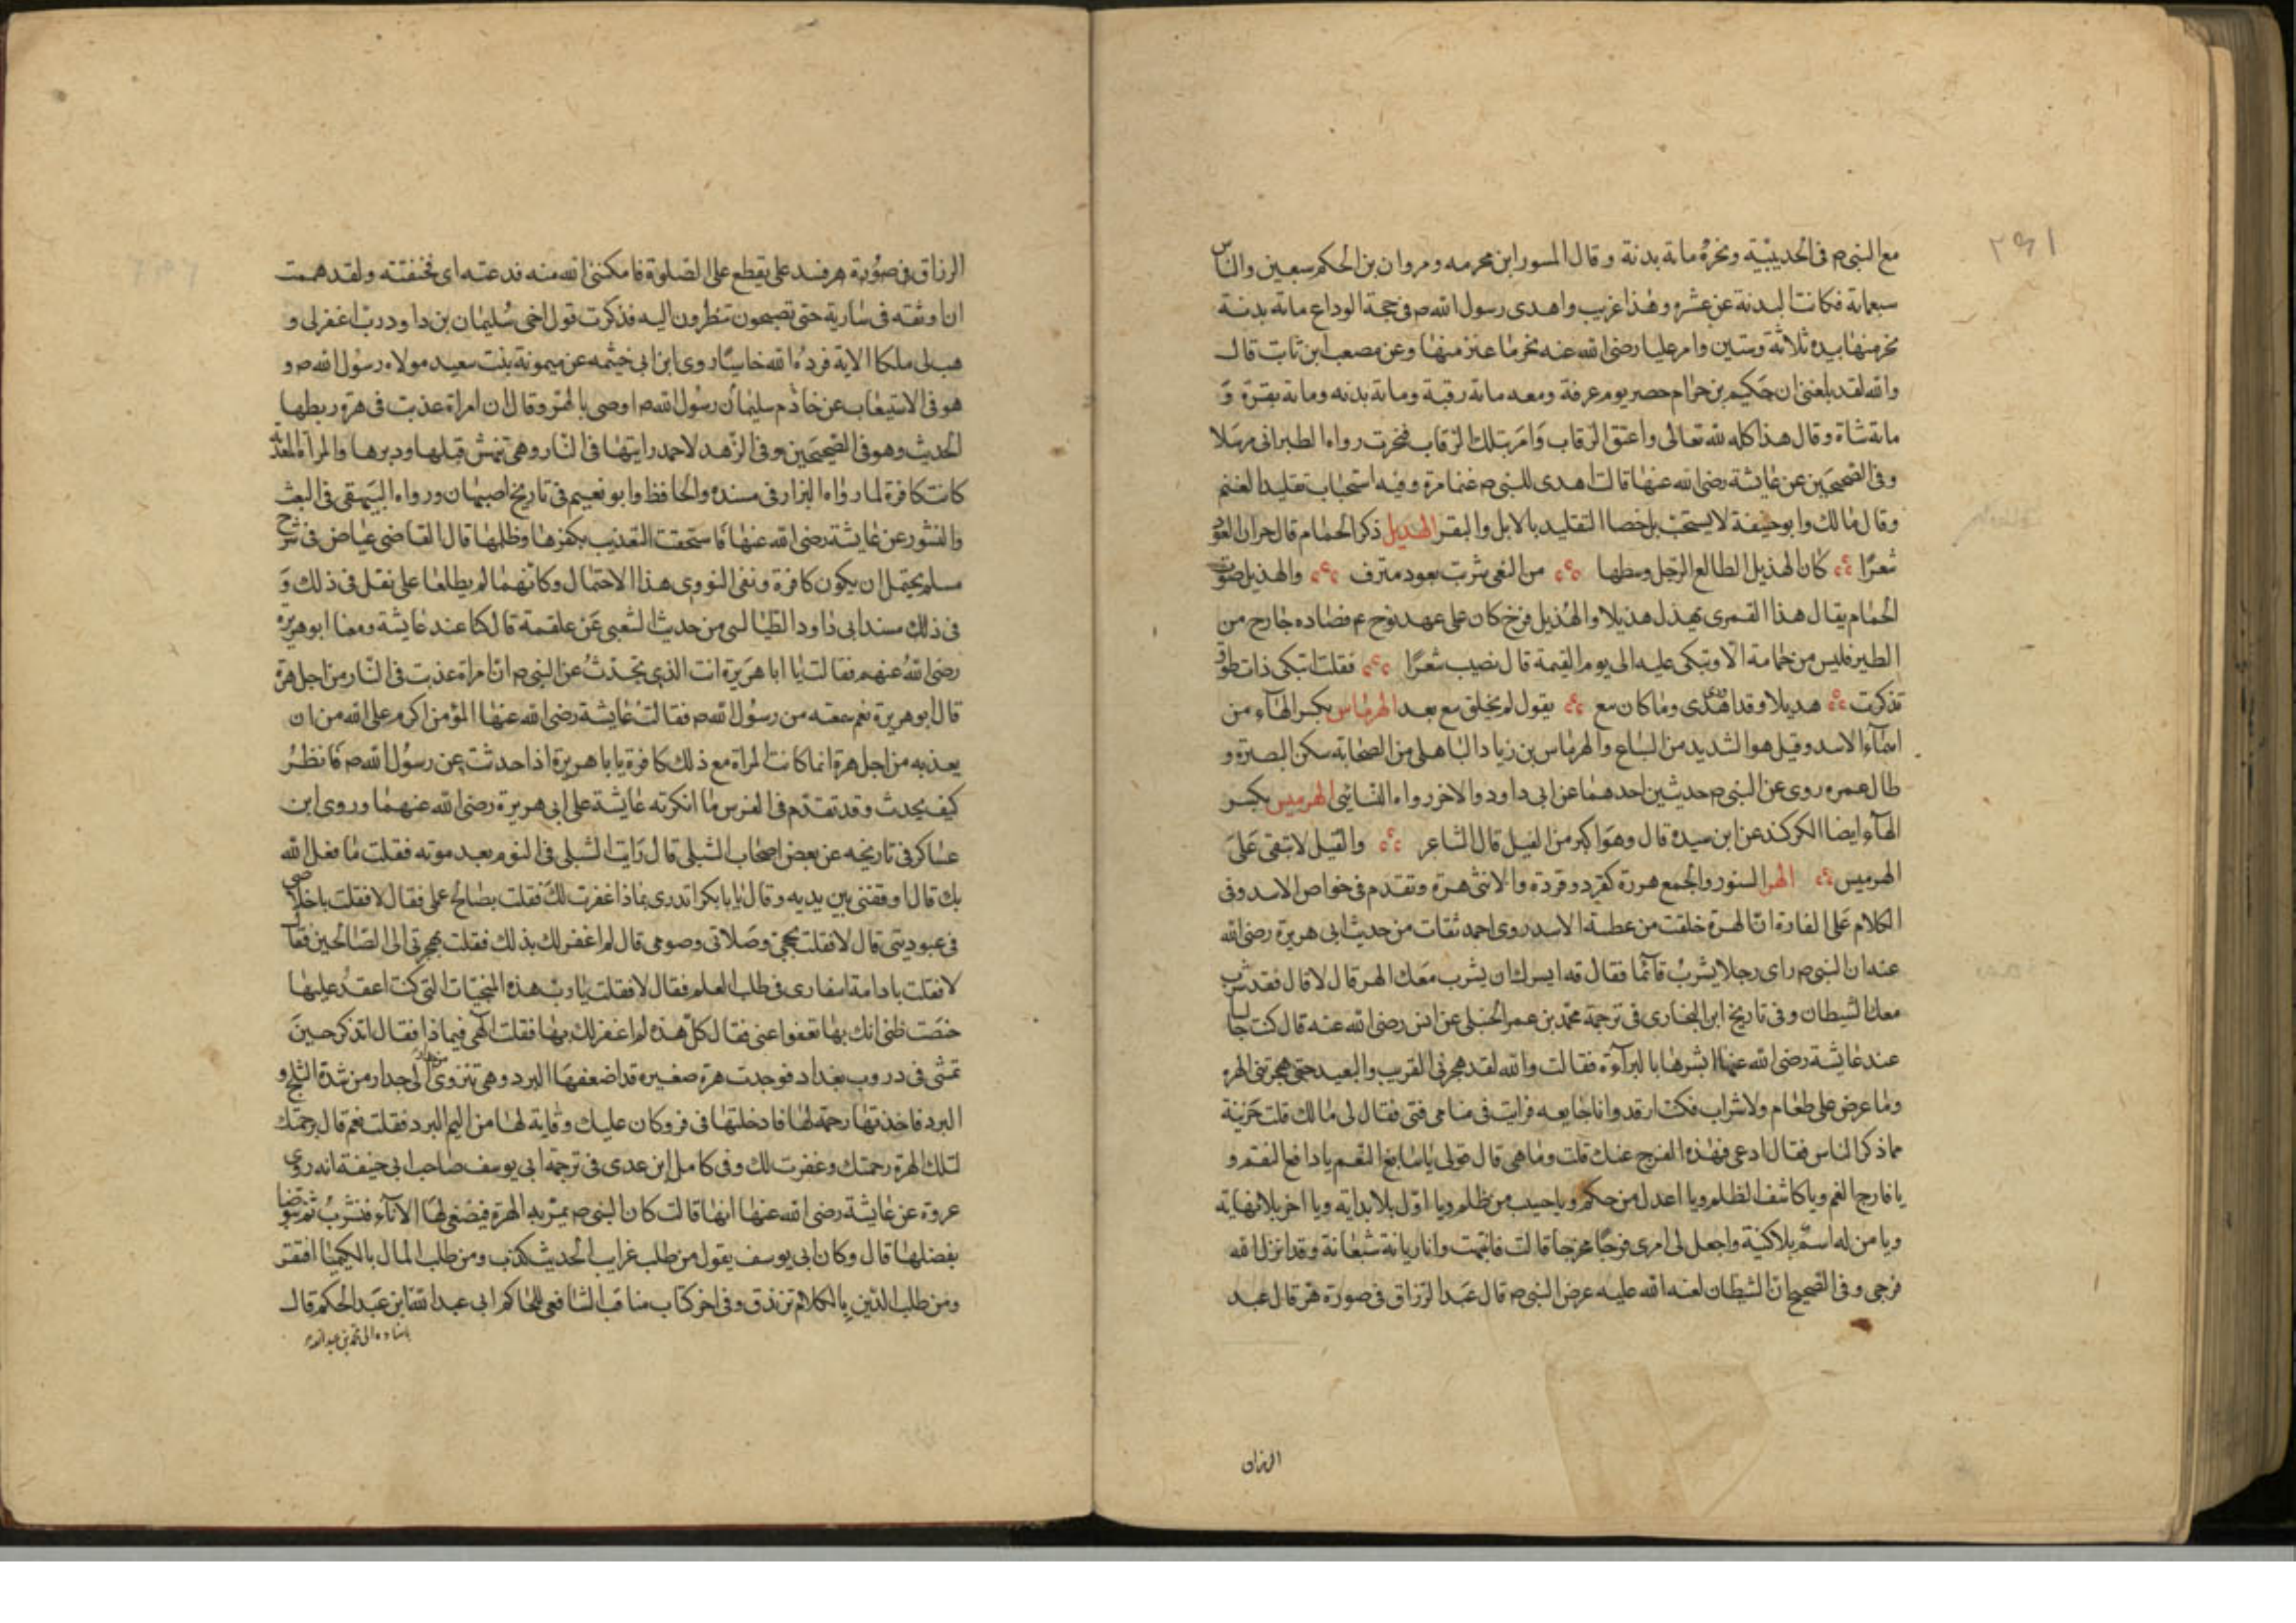 ٢٩١
مع النبي م في الحديبية ونحره ماىة بدنة وقال المسور ابن مخرمه ومروان بن الحكم سبعين والناس
سبعماىة فكانت البدنة عن عشره وهذا غريب واهدى رسول الله ص في حجة الوداع ماىة بدنة
نحر منها بيده ثلاثة وستين وامر عليا رضى الله عنه نحر ما عنز منها وعن مصعب ابن ثابت قال
والله لقد بلغنى ان حكيم بن حزام حصر يوم عرفة ومعه ماىة رقبة وماىة بدنه وماىة بقرة و
ماىة شاة وقال هذا كله لله تعالى واعتق الرقاب وامر بتلك الرقاب فنحرت رواه الطبرانى مرسلا
وفى الصحيحين عن عايشة رضى الله عنها قالت اهدى للنبى ص غنما مرة وفيه استحباب تقليد الغنم
وقال مالك وابو حنيفة لا يستحب بل خصا التقليد بالابل والبقر الهديل ذكر الحمام قال جران العود
شعرًا كان الهذيل الطالع الرجل وسطها من البغى شرب بعود مترف والهذيل صوت
الحمام يقال هذا القمرى يهذل هذيلا والهذيل فرخ كان على عهد نوح ع فصاده جارح من
الطير فليس من حمامة الا وتبكى عليه الى يوم القيمة قال نصيب شعرًا فقلت اتبكى ذات طوق
تذكرت هديلا وقد اهدى وما كان سع يقول لم يخلق مع بعد الهرماس بكسر الهاء من
اسماء الاسد وقيل هو الشديد من السباع والهرماس بن زياد الباهلى من الصحابه سكن البصرة و
طال عمره روى عن النبى ص حديثين احدهما عن ابى داود والاخر رواه النسائى الهرميس بكسر
الهاء ايضا الكركند عن ابن سيده قال وهو اكبر من الفيل قال الشاعر والفيل لا تبقى على
الهرميس الهر السنور والجمع هررة كقرد وقردة والانثى هرة وتقدم فى خواص الاسد وفى
الكلام على الفارة ان الهرة خلقت من عطسة الاسد روى احمد ثقات من حديث ابى هريرة رضى الله
عنه ان النبى ص راى رجلا يشرب قائما فقال قه ايسرك ان يشرب معك الهر قال لا قال فقد شرب
معك الشيطان وفى تاريخ ابن النجارى فى ترجمة محمد بن عمر الحنبلى عن انس رضى الله عنه قال كنت جالسا
عند عايشة رضى الله عنها ابشرها بالبراءة فقالت والله لقد هجرنى القريب والبعيد حتى هجرتنى الهره
وما عرض على طعام ولا شراب فكنت ارقد وانا جايعه فرايت فى منامى فتى فقال لى مالك قلت حزينة
مما ذكر الناس فقال ادعى فهذه الفرج عنك قلت وما هى قال قولى يا سابغ النعم يا دافع النقم و
يا فارج الغم ويا كاشف الظلم ويا اعدل من حكم ويا حسيب من ظلم ويا اول بلا بداية ويا اخر بلا نهاية
ويا من له اسم بلا كنية واجعل لى امرى فرجًا مخرجا قالت فانتبهت وانا ريانة شبعانة وقد انزل الله
فرجى وفى الصحيح ان الشيطان لعنه الله عليه عرض النبى ص قال عبد الرزاق فى صورة هر قال عبد
الرزاق
الرزاق فى صورة هر فشد على يقطع على الصلوة فامكننى الله منه فدعته اى خنقته ولقد هممت
ان اوثقه فى سارية حتى تصبحون تنظرون اليه فذكرت قول اخى سليمان بن داود رب اغفر لى و
هب لى ملكا الاية فرده الله خاسئًا روى ابن ابى خيثمه عن ميمونة بنت سعيد مولاه رسول الله ص و
هو فى الاستيعاب عن خادم سليمان رسول الله ص اوصى بالهر وقال ان امراة عذبت فى هرة ربطها
الحديث وهو فى الصحيحين وفى الزهد لاحمد رايتها فى النار وهى تنهش قبلها ودبرها والمراة المعذبة
كانت كافرة لما رواه البزار فى مسنده والحافظ وابو نعيم فى تاريخ اصبهان ورواه البيهقى فى البعث
والنشور عن عايشة رضى الله عنها فاستحقت التعذيب بكفرها وظلمها قال القاضى عياض فى شرح
مسلم يحتمل ان يكون كافرة ونفى النووى هذا الاحتمال وكانهما لم يطلعا على نقل فى ذلك و
فى ذلك مسند ابى داود الطيالسى من حديث الشعبى عن علقمة قال كنا عند عايشة ومعنا ابو هريره
رضى الله عنهم فقالت يا ابا هريرة انت الذى تحدث عن النبى ص ان امراة عذبت فى النار من اجل هرة
قال ابو هريرة نعم سمعته من رسول الله ص فقالت عايشة رضى الله عنها المؤمن اكرم على الله من ان
يعذبه من اجل هرة انما كانت المراة مع ذلك كافرة يابا هريرة اذا حدثت عن رسول الله ص فانظر
كيف يحدث وقد تقدم فى الفرس ما انكرته عايشة على ابى هريرة رضى الله عنهما وروى ابن
عساكر فى تاريخه عن بعض اصحاب الشبلى قال رايت الشبلى فى النوم بعد موته فقلت ما فعل الله
بك قال اوقفنى بين يديه وقال يابا بكر اتدرى بماذا غفرت لك فقلت بصالح عملى فقال لا فقلت باخلاصى
فى عبوديتى قال لا فقلت بحجى وصلاتى وصومى قال لم اغفر لك بذلك فقلت بهجرتى الى الصالحين فقال
لا فقلت بادامة اسفارى فى طلب العلم فقال لا فقلت يا رب هذه المنجيات التى كنت اعقد عليها
خنصرى ظنى انك بها تعفوا عنى فقال كل هذه لم اغفر لك بها فقلت الهى فبماذا فقال اتذكر حين
تمشى فى دروب بغداد فوجدت هرة صغيرة قد اضعفها البرد وهى تنزوى الى جدار من شدة الثلج و
البرد فاخذتها رحمة لها فادخلتها فى فرو كان عليك وقاية لها من اليم البرد فقلت نعم قال برحمتك
لتلك الهرة رحمتك وغفرت لك وفى كامل ابن عدى فى ترجمة ابى يوسف صاحب ابى حنيفة انه روى
عروة عن عايشة رضى الله عنها انها قالت كان النبى ص يمر به الهرة فيصغى لها الاناء فتشرب ثم يتوضا
بفضلها قال وكان ابى يوسف يقول من طلب غرايب الحديث كذب ومن طلب المال بالكيميا افتقر
ومن طلب الدين بالكلام تزندق وفى اخر كتاب مناقب الشافعى للحاكم ابى عبد الله ابن عبد الحكم قال
باسناده الى محمد بن عبد الله